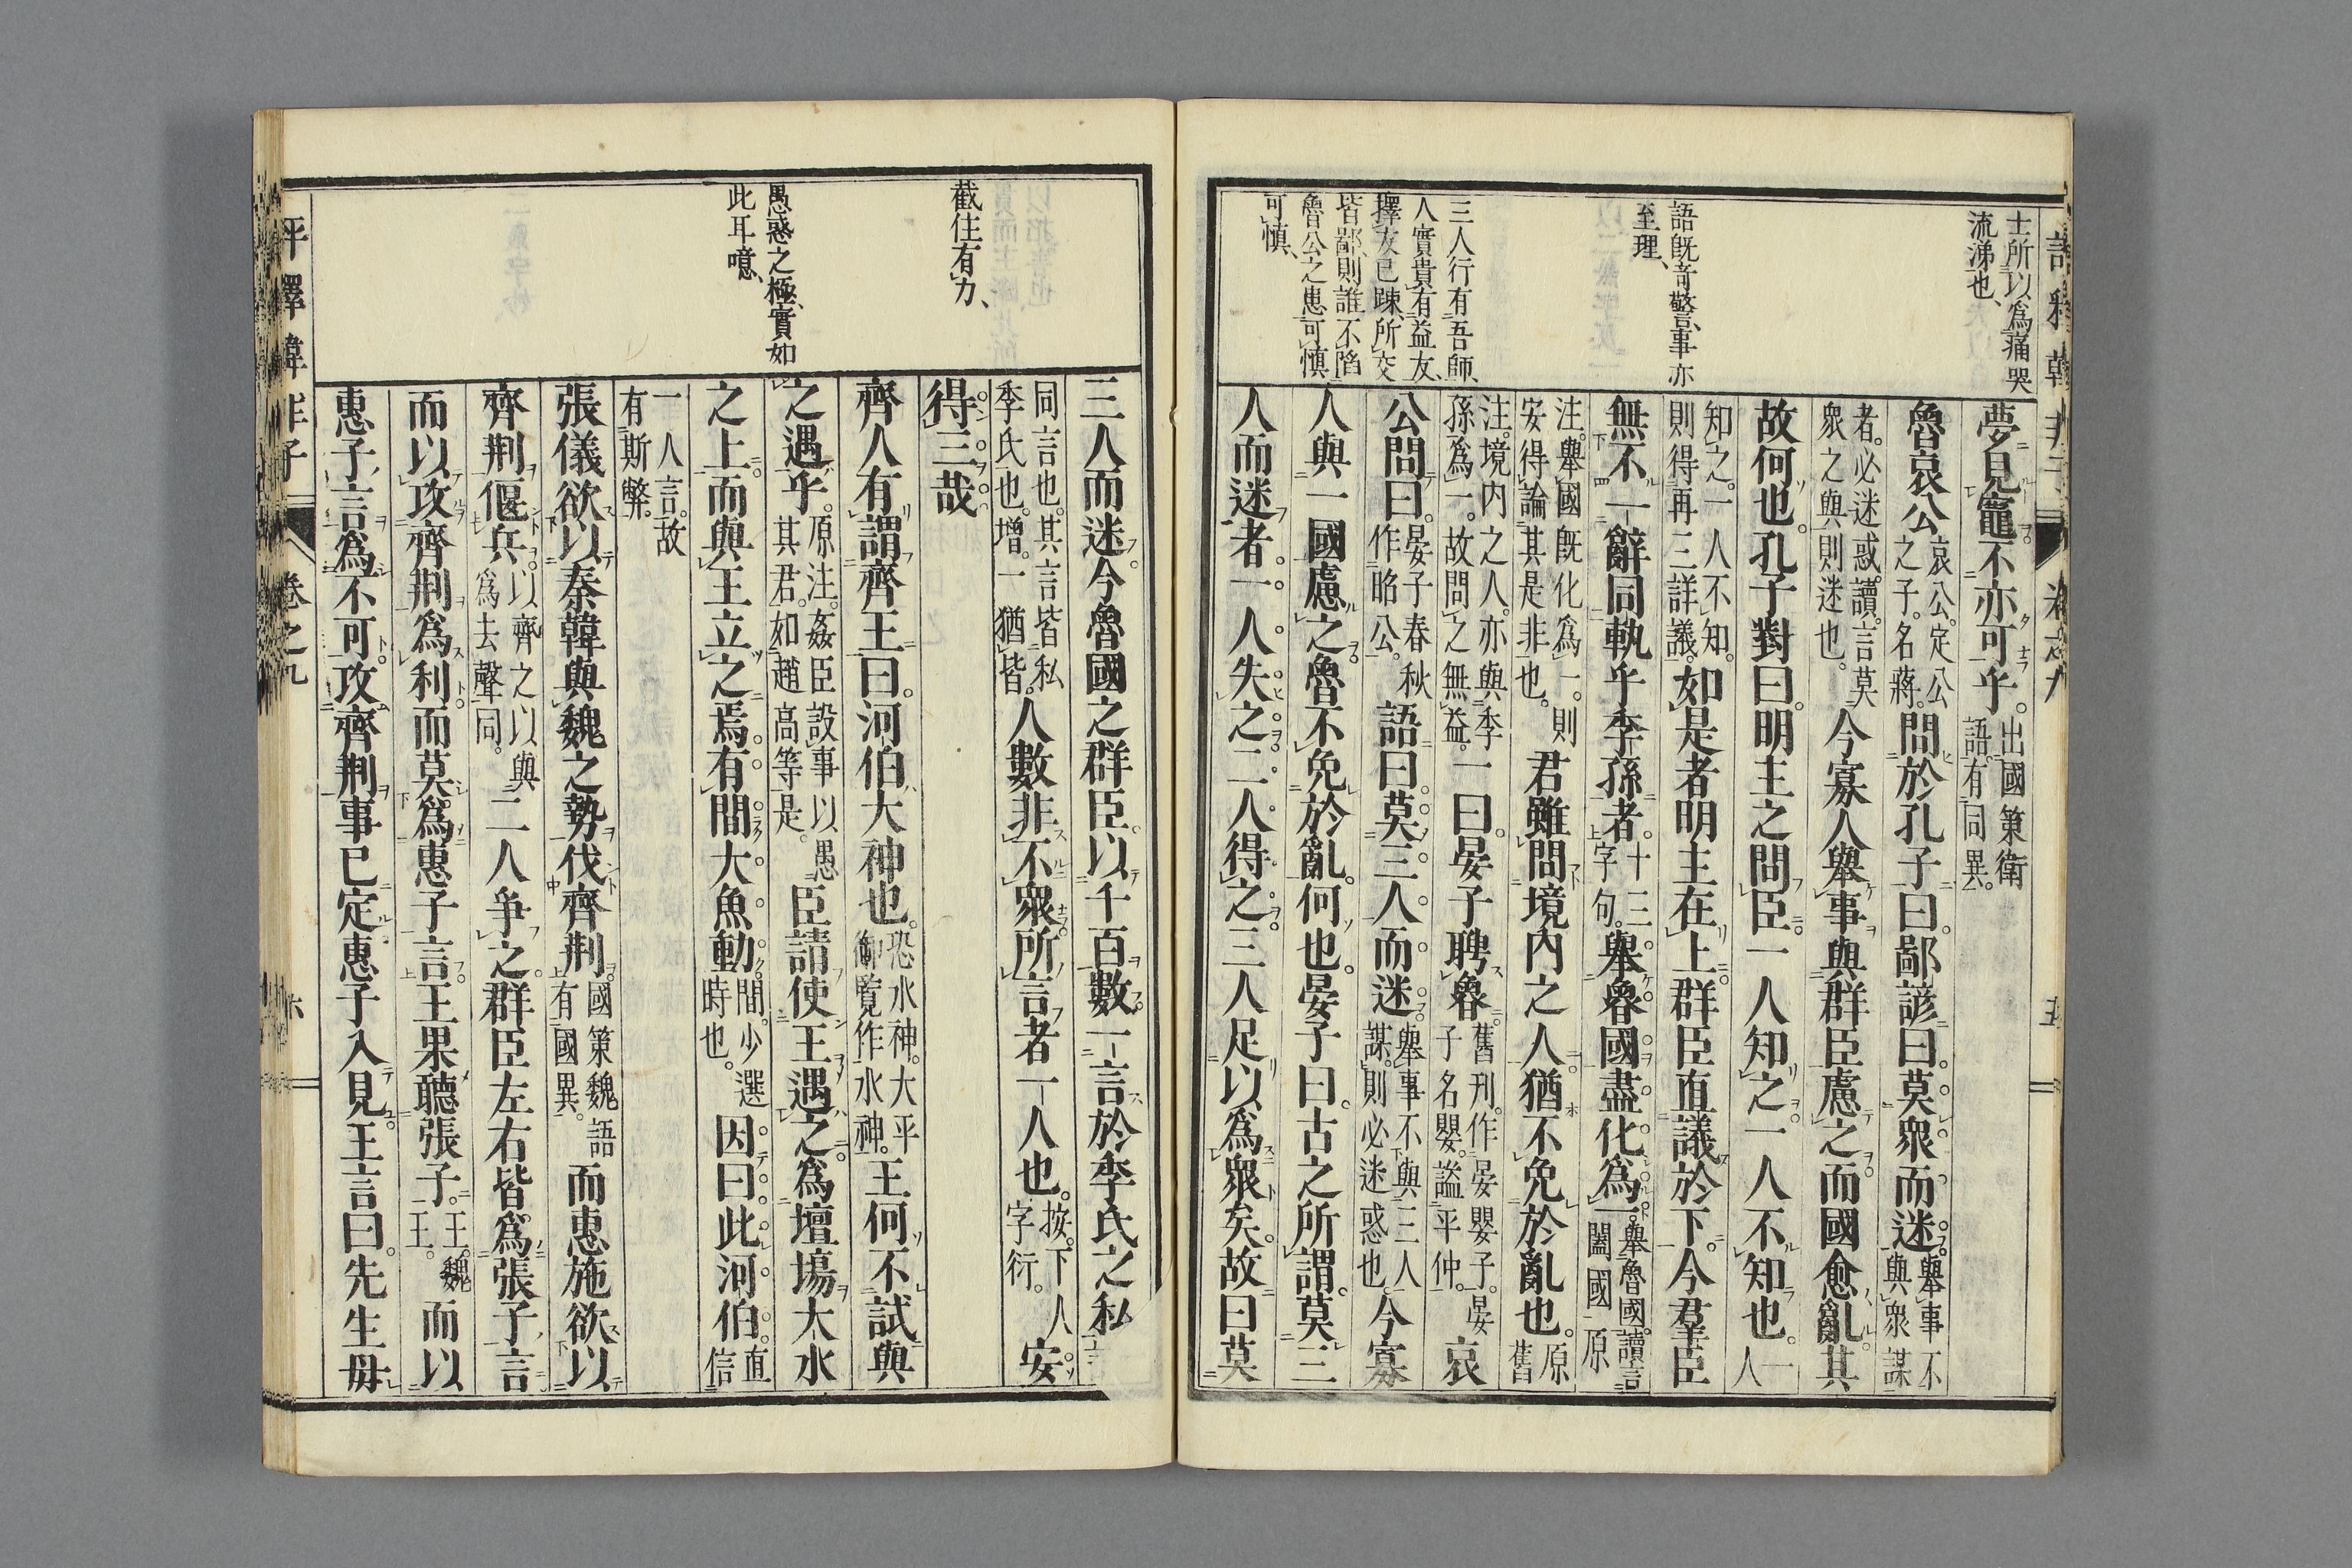 士所以爲痛哭
流涕也、
語既奇警、事亦
至理、
三人行有吾師、
人實貴有益友、
擇友已疎、所交
皆鄙、則誰不陷
魯公之患可慎
可慎、
夢見竈不亦可乎。出國策衛
語有同異。
魯哀公哀公。定公
之子。名蔣。問於孔子曰。鄙諺曰。莫衆而迷。舉事不
與衆謀
者。必迷惑。讀。言莫
衆之與則迷也。今寡人舉事與群臣慮之而國愈亂其
故何也。孔子對曰。明主之問臣。一人知之。一人不知也。一
人
知之。一人不知。
則得再三詳議。如是者明主在上群臣直議於下。今羣臣
無不一辭同軌乎季孫者。十三
字句。舉魯國盡化爲一。舉魯國。讀。言
闔國一原
注。舉國既化爲一。則
安得論其是非也。君雖問境內之人猶不免於亂也。原
舊
注。境内之人。亦與季
孫爲一。故問之無益。一曰。晏子聘魯。舊刊。作晏嬰子。晏
子名嬰。謚平仲。哀
公問曰。晏子春秋
作昭公。語曰。莫三人而迷。舉事不與三人
謀。則必迷惑也。今寡
人與一國慮之魯不免於亂。何也。晏子曰。古之所謂。莫三
人而迷者。一人失之。二人得之。三人足以爲衆矣。故曰莫
評釋韓非子
卷之九
五
截住有力、
愚惑之極、實如
此耳、噫、
三人而迷。今魯國之群臣。以千百數。一言於季氏之私
同言也。其言皆私
季氏也。增。一猶皆。人數非不衆。所言者一人也。按。下人
字衍。安
得三哉
齊人有謂齊王曰。河伯大神也。恐水神。大平
御覽作水神。王何不試與
之遇乎。原注。姦臣設事以愚
其君。如趙高等是。臣請使王遇之。爲壇場大水
之上。而與王立之焉。有間。大魚動。間。少選
時也。因曰。此河伯。直
信
一人言。故
有斯弊。
張儀欲以秦韓與魏之勢伐齊荆。國策魏語
有國異。而惠施欲以
齊荆偃兵。以齊之以與
爲去聲同。二人爭之。群臣左右皆爲張子言
而以攻齊荆爲利。而莫爲惠子言。王果聽張子。王。魏
王。而以
惠子言爲不可。攻齊荆事已定。惠子入見。王言曰。先生毋
評釋韓非子
卷之九
六